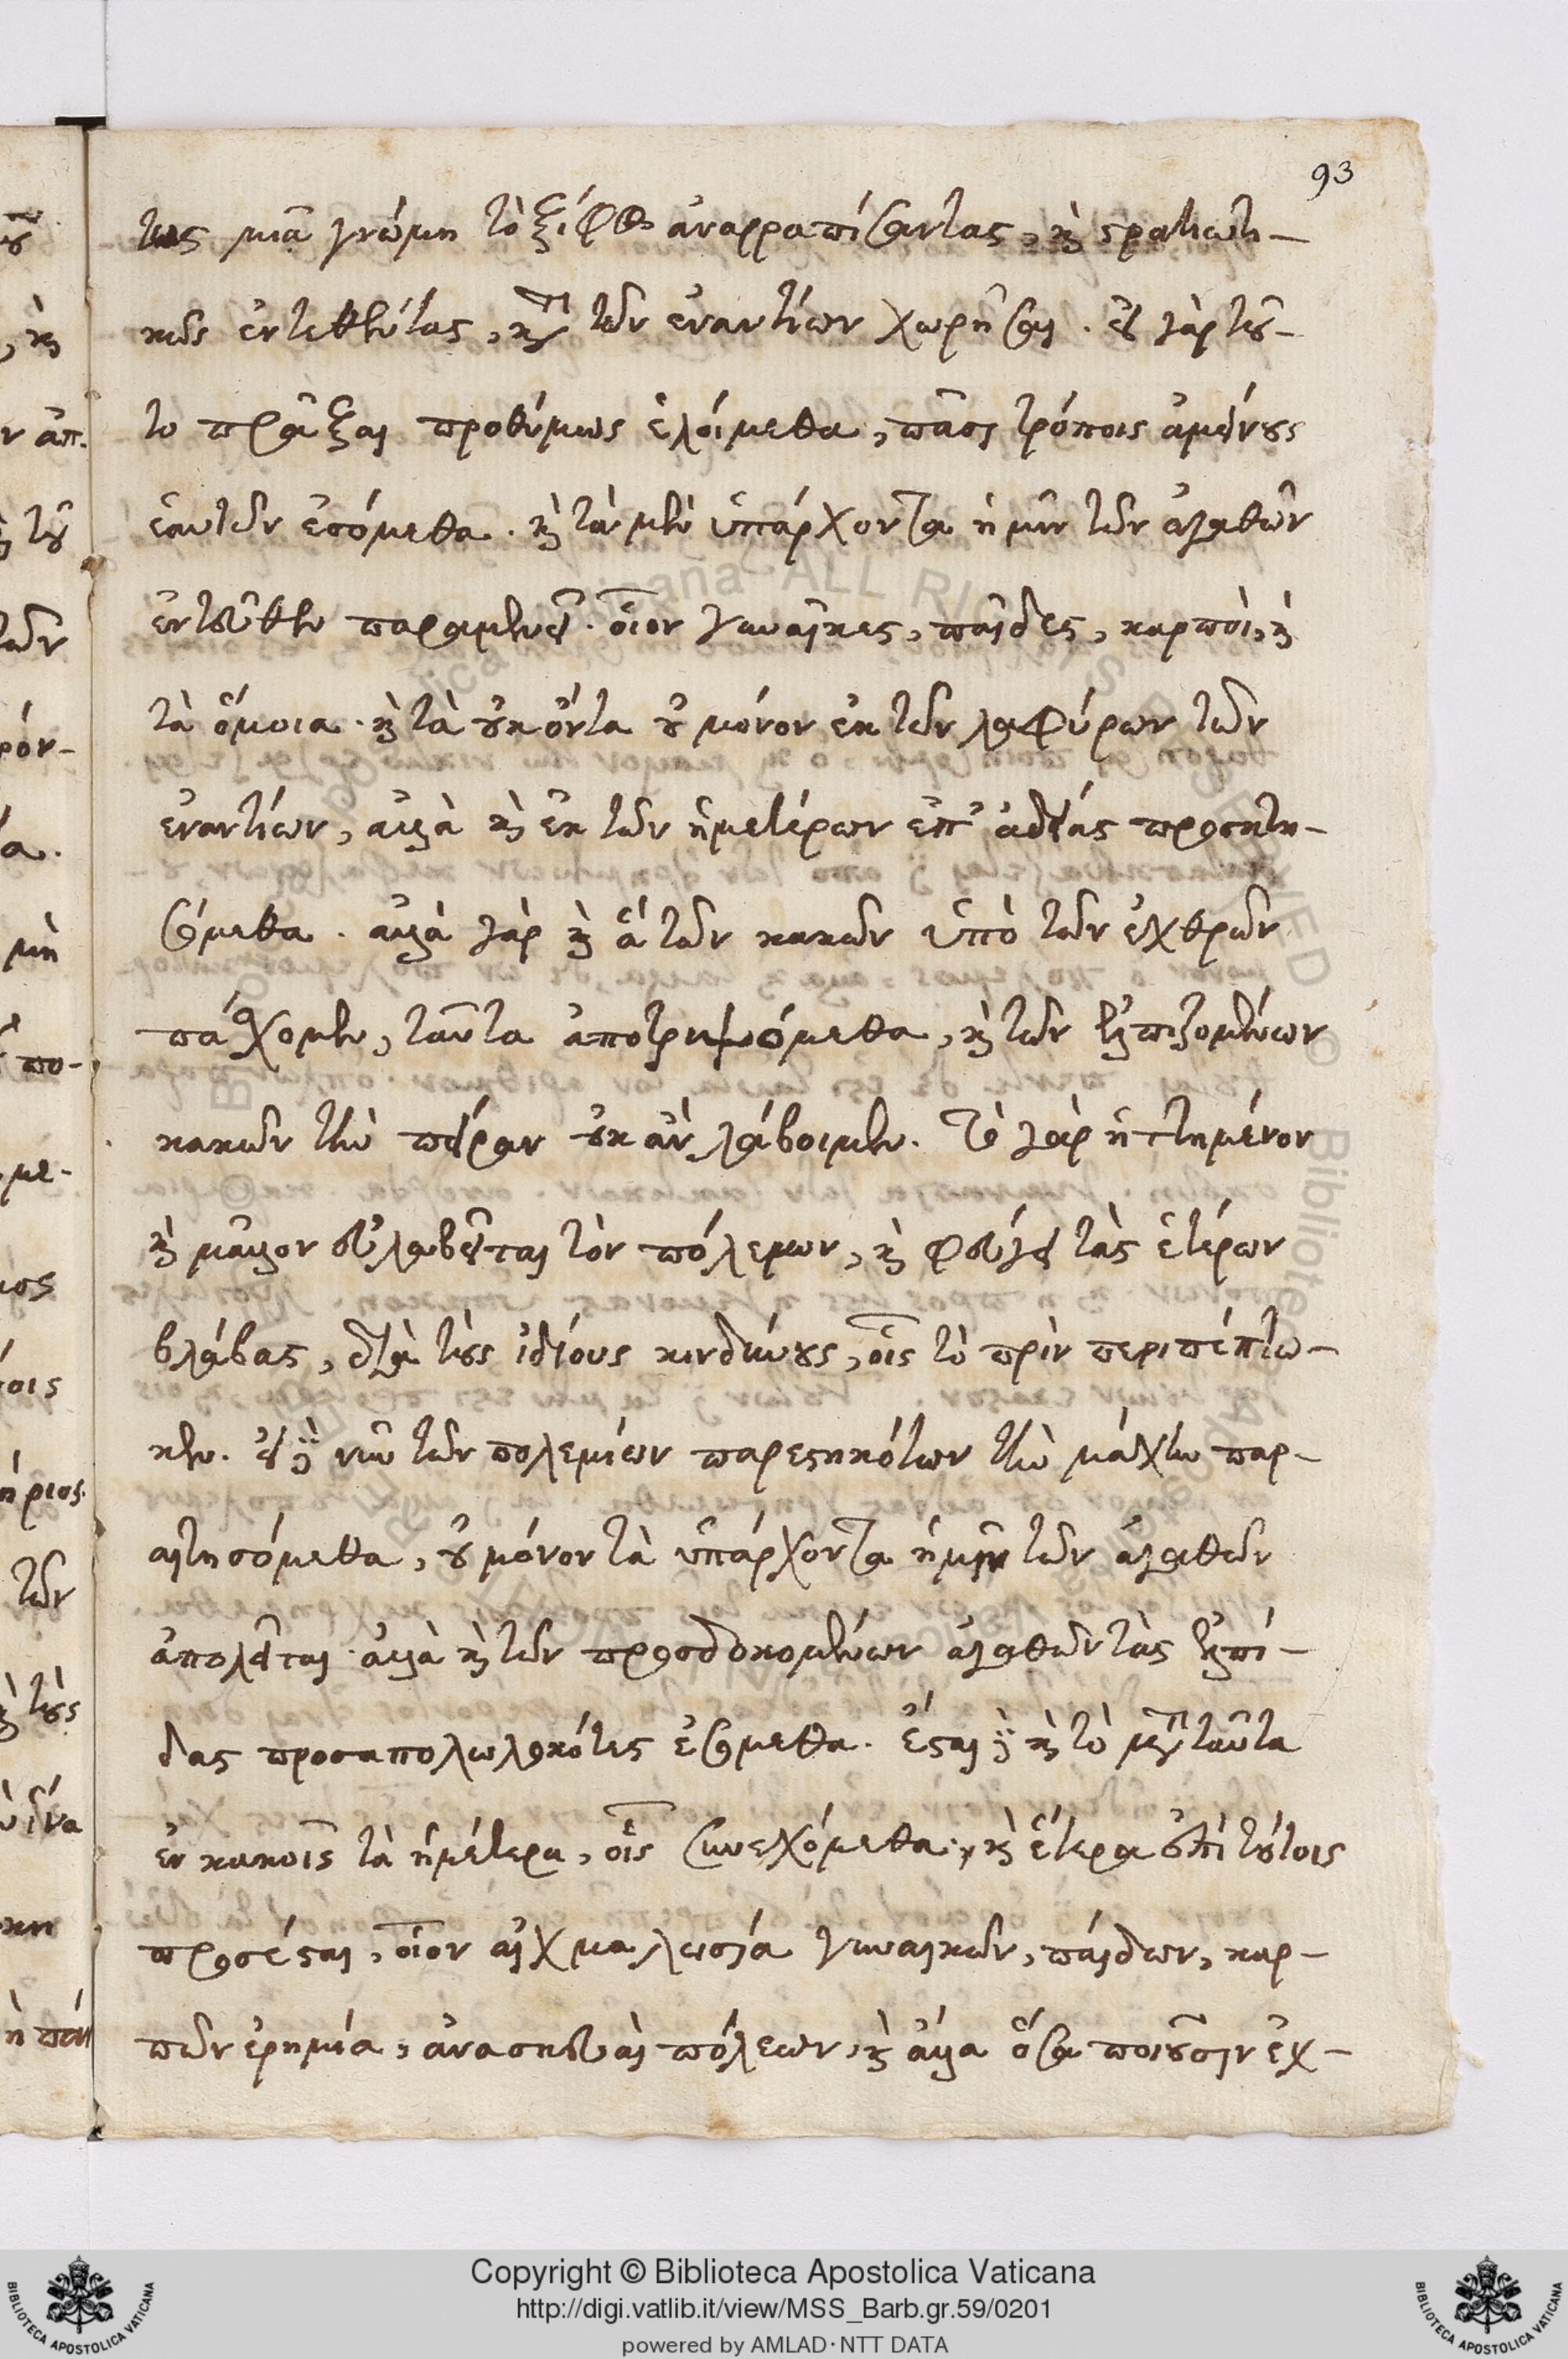 93
τας μιᾷ γνώμῃ τὸ ξίφος ἀναρριπίσαντας, καὶ στρατιωτι-
κῶς ἐντεθέντας, κατὰ τῶν ἐναντίων χωρῆσαι. εἰ γὰρ τοῦ-
το πρᾶξαι προθύμως ἑλοίμεθα, πᾶσι τρόποις ἀμείνους
ἑαυτῶν ἐσόμεθα. καὶ τὰ μὲν ὑπάρχοντα ἡμῖν τῶν ἀγαθῶν
ἐντεῦθεν παραμενεῖ. οἷον γυναῖκες, παῖδες, καρποὶ, καὶ
τὰ ὅμοια. καὶ τὰ οὐκ ὄντα οὐ μόνον ἐκ τῶν λαφύρων τῶν
ἐναντίων, ἀλλὰ καὶ ἐκ τῶν ἡμετέρων ἐπ' ἀδείας προσκτη-
σόμεθα. ἀλλὰ γὰρ καὶ ἃ τῶν κακῶν ὑπὸ τῶν ἐχθρῶν
πάσχομεν, ταῦτα ἀποτρεψόμεθα, καὶ τῶν ἐλπιζομένων
κακῶν τὴν πεῖραν οὐκ ἂν λάβοιμεν. τὸ γὰρ ἡττημένον
καὶ μᾶλλον εὐλαβεῖται τὸν πόλεμον, καὶ φεύγει τὰς ἑτέρων
βλάβας, διὰ τοὺς ἰδίους κινδύνους, οἷς τὸ πρὶν περιπέπτω-
κεν. εἰ δὲ νῦν τῶν πολεμίων παρεστηκότων τὴν μάχην παρ-
αιτησόμεθα, οὐ μόνον τὰ ὑπάρχοντα ἡμῖν τῶν ἀγαθῶν
ἀπολεῖται. ἀλλὰ καὶ τῶν προσδοκομένων ἀγαθῶν τὰς ἐλπί-
δας προσαπολωλεκότες ἐσόμεθα. ἔσται δὲ καὶ τὸ μετὰ ταῦτα
ἐν κακοῖς τὰ ἡμέτερα, οἷς συνεχόμεθα, καὶ ἕτερα ἐπὶ τούτοις
προσέσται, οἷον αἰχμαλωσία γυναικῶν, παίδων, καρ-
πῶν ἐρημία, ἀνασκευαὶ πόλεων, καὶ ἄλλα ὅσα ποιοῦσιν ἐχ-
Copyright © Biblioteca Apostolica Vaticana
http://digi.vatlib.it/view/MSS_Barb.gr.59/0201
powered by AMLAD·NTT DATA